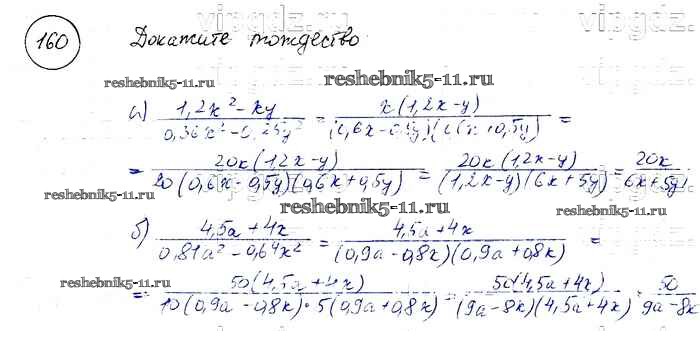 160 Докажите тождество
reshebnik5-11.ru. reshebnik5-11.ru.
а) (1,2x² - xy)/(0,36x² - 0,25y²) = x(1,2x-y)/((0,6x-0,5y)(0,6x+0,5y)) =
= 20x(1,2x-y)/(20(0,6x-0,5y)(0,6x+0,5y)) = 20x(1,2x-y)/((1,2x-y)(6x+5y)) = 20x/(6x+5y);
reshebnik5-11.ru. reshebnik5-11.ru.
б) (4,5a+4x)/(0,81a² - 0,64x²) = (4,5a+4x)/((0,9a-0,8x)(0,9a+0,8x)) =
reshebnik5-11.ru.
= 50(4,5a+4x)/(10(0,9a-0,8x)·5(0,9a+0,8x)) = 50(4,5a+4x)/((9a-8x)(4,5a+4x)) = 50/(9a-8x)
reshebnik5-11.ru.